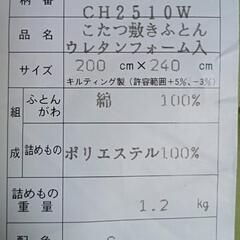 柄番 CH2510W
品名 こたつ敷きふとん
ウレタンフォーム入
サイズ 200 cm×240 cm
キルティング製(許容範囲+5%、-3%)
組成 ふとんがわ 綿 100%
詰めもの ポリエステル100%
詰めもの重量 1.2 kg
配色